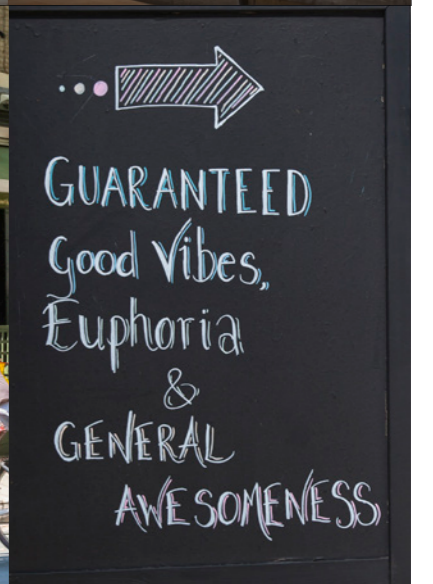 GUARANTEED
Good Vibes,
Euphoria
&
GENERAL
AWESOMENESS